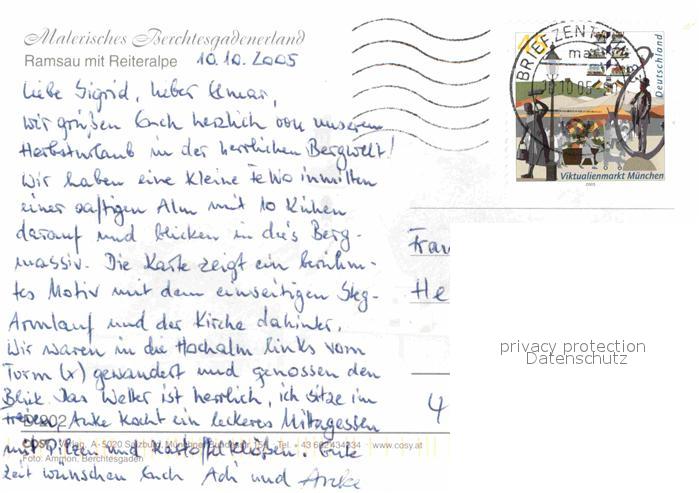 Malerisches Berchtesgadenerland
Ramsau mit Reiteralpe 10.10.2005
Liebe Sigrid, lieber Elmar,
wir grüßen Euch herzlich von unserem
Herbsturlaub in der herrlichen Bergwelt!
Wir haben eine kleine FeWo inmitten
einer saftigen Alm mit 10 Kühen
darauf und blicken in die's Berg-
massiv. Die Karte zeigt ein berühm-
tes Motiv mit dem einseitigen Steg-
Armlauf und der Kirche dahinter.
Wir waren in die Hochalm links vom
Turm (x) gewandert und genossen den
Blick. Das Wetter ist herrlich, ich sitze im
Freien, Anke kocht ein leckeres Mittagessen
mit Pilzen und Kartoffelklößen. Gute
Zeit wünschen Euch Adi und Anke
COSY Verlag, A-5020 Salzburg
Tel. +43 662 434334 · www.cosy.at
Foto: Ammon, Berchtesgaden
BRIEFZENTRUM
Deutschland
Viktualienmarkt München
2003
Frau
He
4
privacy protection
Datenschutz